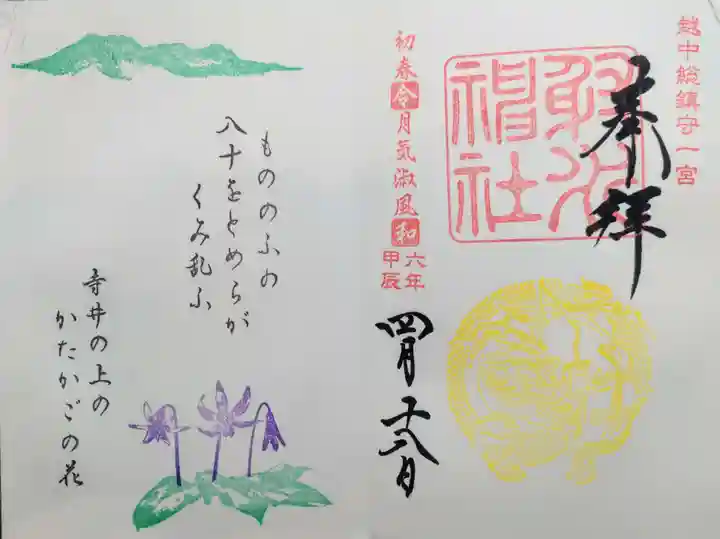 越中総鎮守一宮
奉拝
射水
神社
初春令月気淑風和
六年
甲辰
四月二十八日
もののふの
八十をとめらが
くみ乱ふ
寺井の上の
かたかごの花